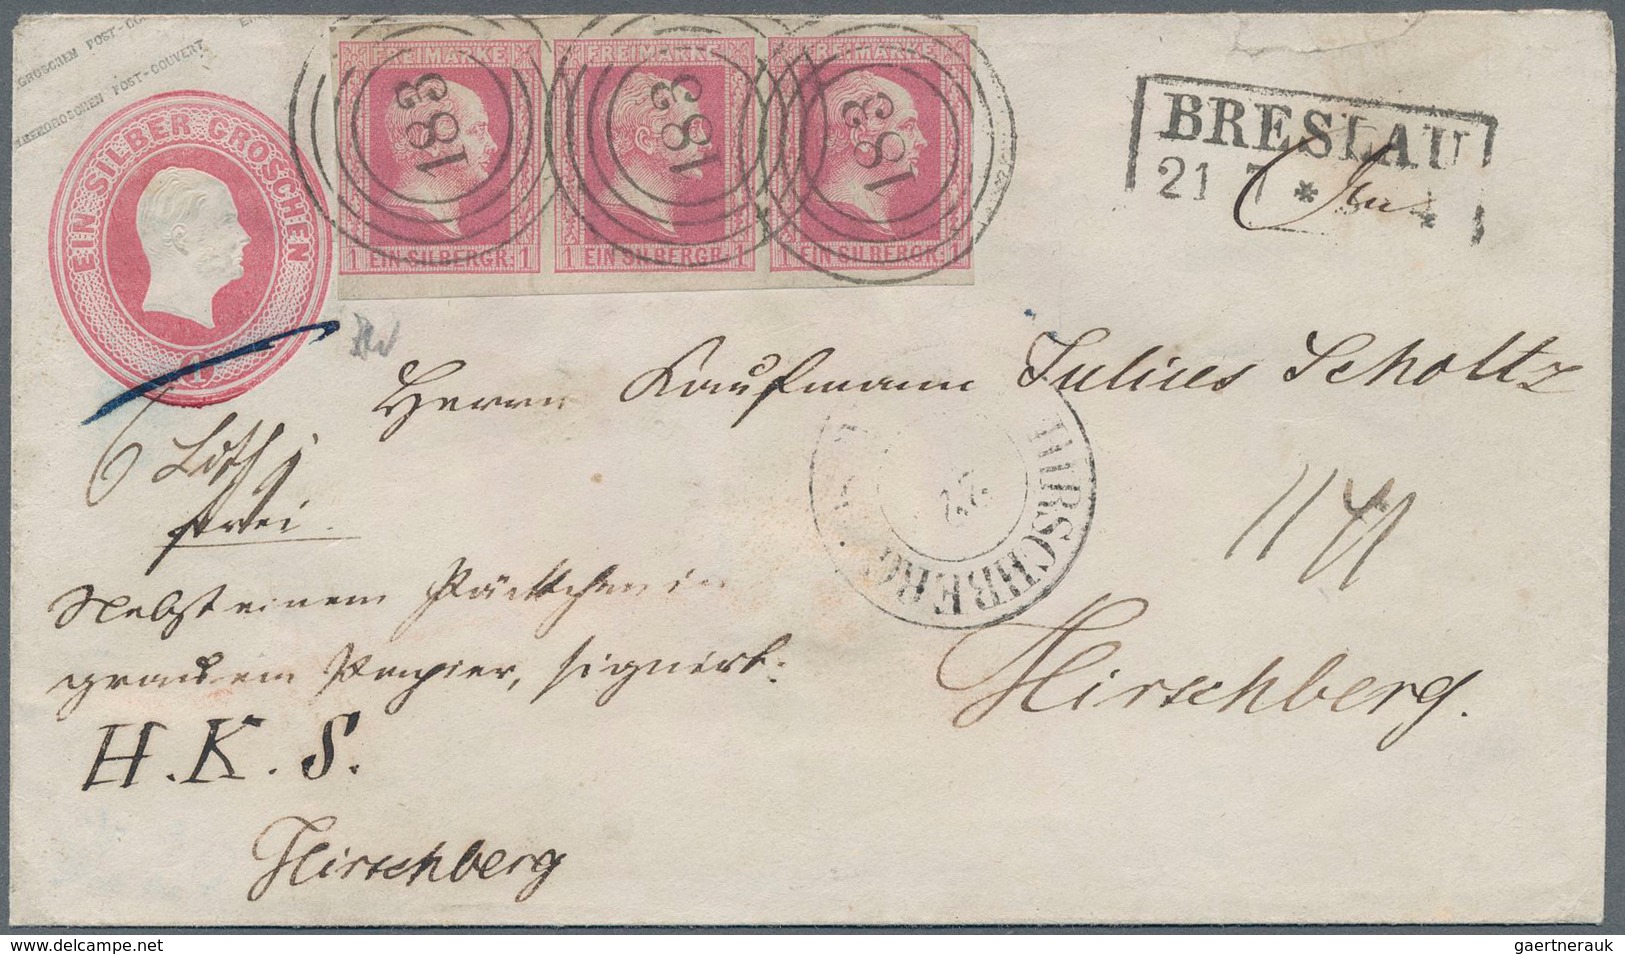 GROSCHEN POST-COUVERT
SILBERGROSCHEN POST-COUVERT
EIN SILBER GROSCHEN
1
FREIMARKE FREIMARKE FREIMARKE
183 183 183
1 EIN SILBERGR. 1 1 EIN SILBERGR. 1 1 EIN SILBERGR. 1
BRESLAU
21 7 *
Herrn Kaufmann Julius Scholtz
6 Loth
frei.
HIRSCHBERG
Nebst einem Päcktchen in
grauem Papier, signirt:
H. K. S.
Hirschberg
Hirschberg.
gaertnerauk